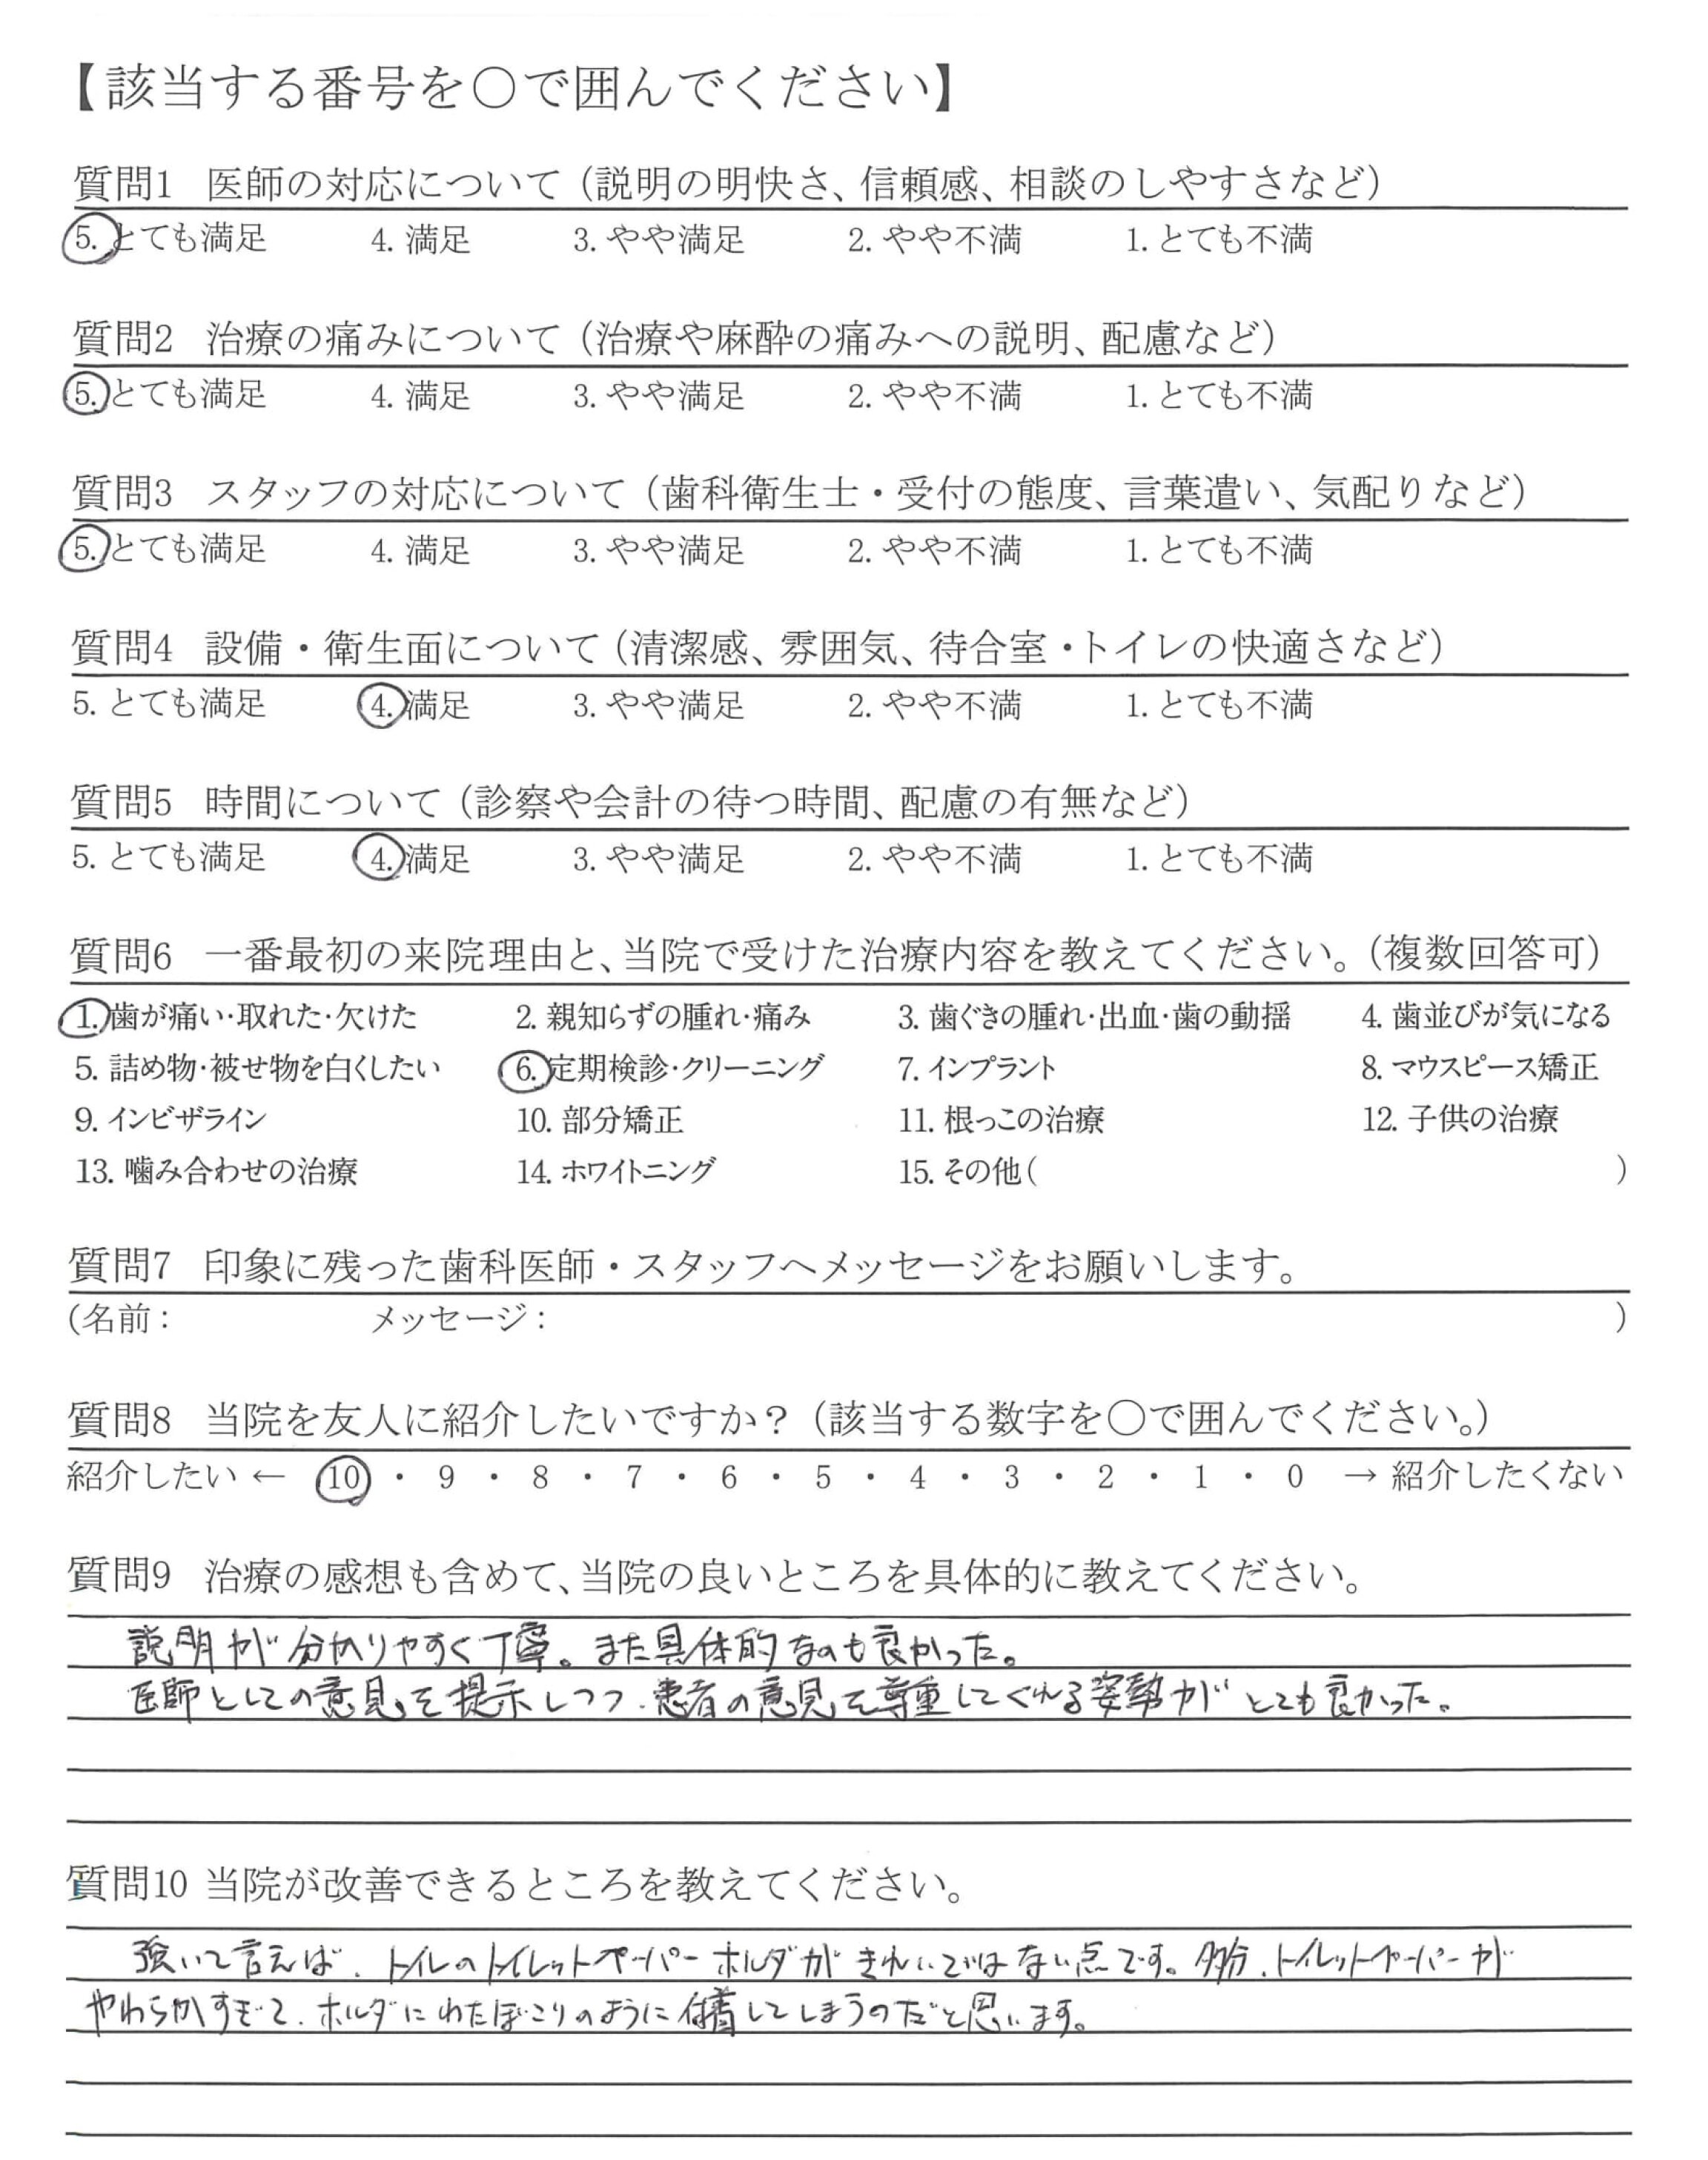 【該当する番号を〇で囲んでください】
質問1 医師の対応について（説明の明快さ、信頼感、相談のしやすさなど）
5. とても満足 4. 満足 3. やや満足 2. やや不満 1. とても不満
質問2 治療の痛みについて（治療や麻酔の痛みへの説明、配慮など）
5. とても満足 4. 満足 3. やや満足 2. やや不満 1. とても不満
質問3 スタッフの対応について（歯科衛生士・受付の態度、言葉遣い、気配りなど）
5. とても満足 4. 満足 3. やや満足 2. やや不満 1. とても不満
質問4 設備・衛生面について（清潔感、雰囲気、待合室・トイレの快適さなど）
5. とても満足 4. 満足 3. やや満足 2. やや不満 1. とても不満
質問5 時間について（診察や会計の待つ時間、配慮の有無など）
5. とても満足 4. 満足 3. やや満足 2. やや不満 1. とても不満
質問6 一番最初の来院理由と、当院で受けた治療内容を教えてください。（複数回答可）
1. 歯が痛い・取れた・欠けた 2. 親知らずの腫れ・痛み 3. 歯ぐきの腫れ・出血・歯の動揺 4. 歯並びが気になる
5. 詰め物・被せ物を白くしたい 6. 定期検診・クリーニング 7. インプラント 8. マウスピース矯正
9. インビザライン 10. 部分矯正 11. 根っこの治療 12. 子供の治療
13. 噛み合わせの治療 14. ホワイトニング 15. その他（ ）
質問7 印象に残った歯科医師・スタッフへメッセージをお願いします。
（名前： メッセージ： ）
質問8 当院を友人に紹介したいですか？（該当する数字を〇で囲んでください。）
紹介したい ← 10 ・ 9 ・ 8 ・ 7 ・ 6 ・ 5 ・ 4 ・ 3 ・ 2 ・ 1 ・ 0 → 紹介したくない
質問9 治療の感想も含めて、当院の良いところを具体的に教えてください。
説明が分かりやすく丁寧。また具体的なのも良かった。
医師としての意見を提示しつつ、患者の意見を尊重してくれる姿勢がとても良かった。
質問10 当院が改善できるところを教えてください。
強いて言えば、トイレのトイレットペーパーホルダがきれいではない点です。多分、トイレットペーパーが
やわらかすぎて、ホルダにわたぼこりのように付着してしまうのだと思います。